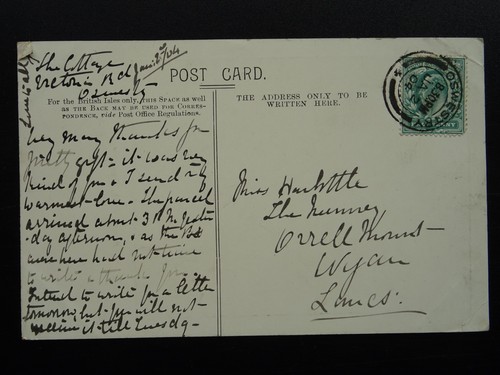 The Cottage
Victoria Rd
Oswestry
POST CARD.
For the British Isles only, THIS SPACE as well
as the BACK MAY BE USED FOR CORRES-
PONDENCE, vide Post Office Regulations.
THE ADDRESS ONLY TO BE
WRITTEN HERE.
OSWESTRY
JA
04
Very Many thanks for
pretty gift - it was very
kind of you & I send my
warmest love - The parcel
arrived about 3 P.M. yester
-day afternoon, & as the
here had not time
to write & thank you
Intend to write you a letter
tomorrow, but you will not
receive it till Tuesday -
Miss Harbottle
The
Orrell Mount
Wigan
Lancs: